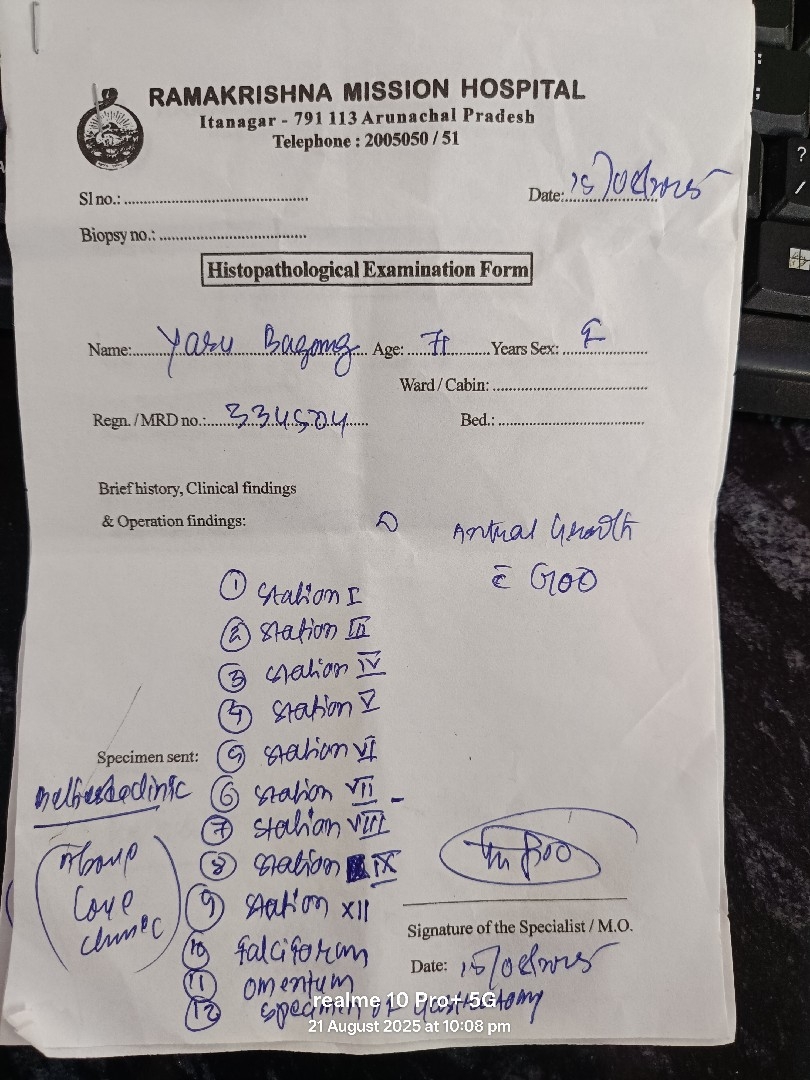 RAMAKRISHNA MISSION HOSPITAL
Itanagar - 791 113 Arunachal Pradesh
Telephone : 2005050 / 51
Sl no.: Date: 15/08/2025
Biopsy no.:
Histopathological Examination Form
Name: Yaru Bagang Age: 71 Years Sex: F
Ward / Cabin:
Regn. / MRD no.: 334504 Bed.:
Brief history, Clinical findings
& Operation findings: Antral Growth
c̄ GOO
① Station I
② Station III
③ Station IV
④ Station V
Specimen sent: ⑤ Station VI
⑥ Station VII
⑦ Station VIII
⑧ Station IX
⑨ Station XII
Signature of the Specialist / M.O.
⑩ Falciform
Date: 15/08/2025
⑪ omentum
⑫ specimen of Gastrectomy
realme 10 Pro+ 5G
21 August 2025 at 10:08 pm